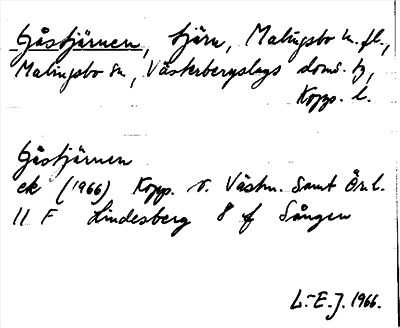 Gåstjärnen, tjärn, Malingsbo k. fl.,
Malingsbo sn, Västerbergslags doms. tg,
Kopp. l.
Gåstjärnen
ek (1966) Kopp. v. Västm. samt Ör. l.
11 F Lindesberg 8 f Sången
L.-E. J. 1966.